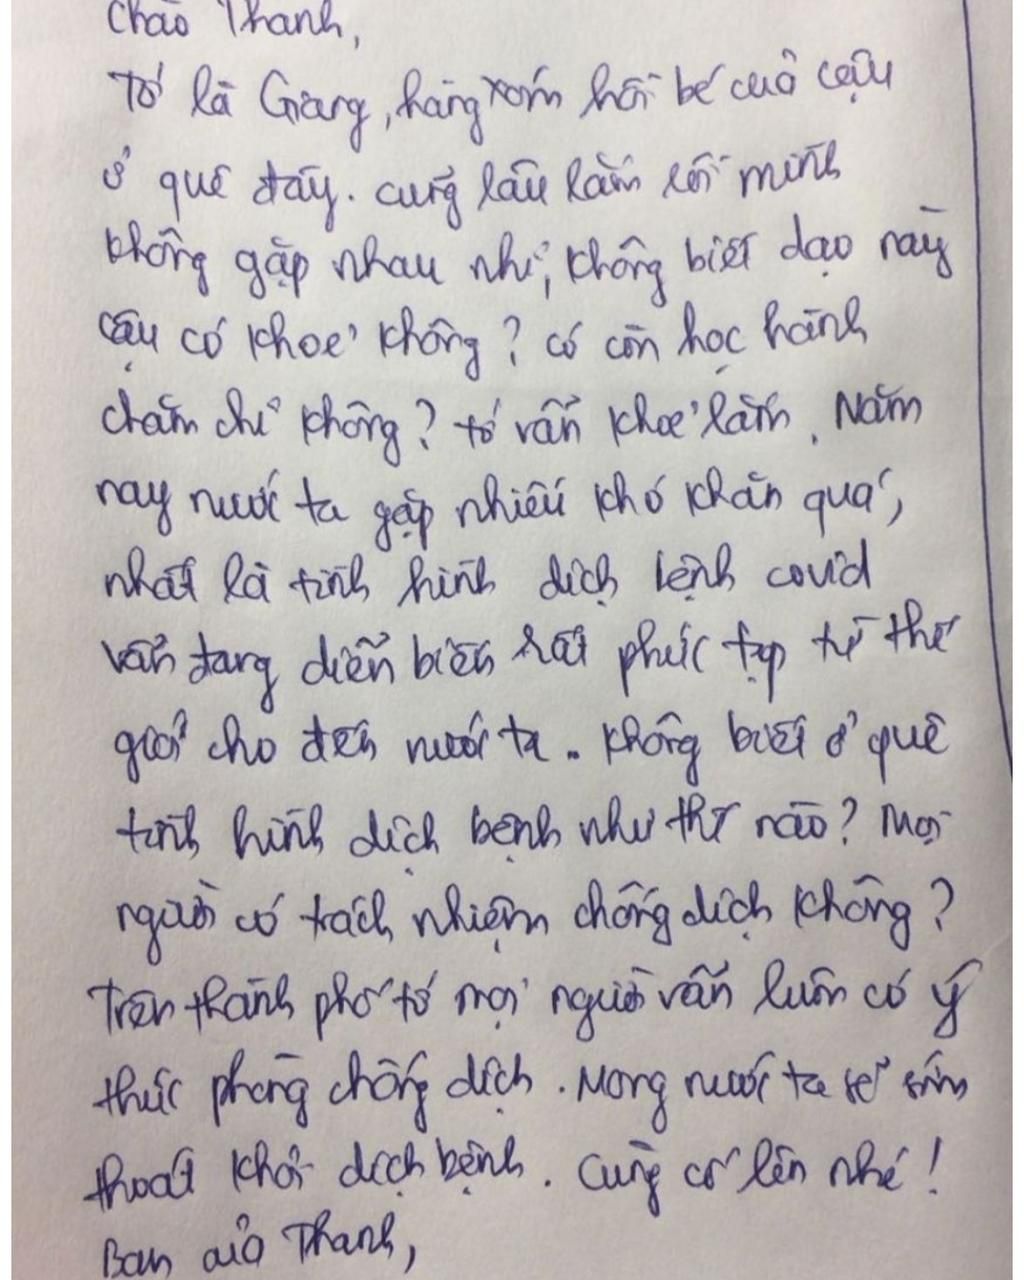 Chào Thanh,
Tớ là Giang, hàng xóm hồi bé của cậu
ở quê đây. cũng lâu lắm rồi mình
không gặp nhau nhỉ, không biết dạo này
cậu có khoẻ không? có còn học hành
chăm chỉ không? tớ vẫn khoẻ lắm. Năm
nay nước ta gặp nhiều khó khăn quá,
nhất là tình hình dịch bệnh covid
vẫn đang diễn biến rất phức tạp từ thế
giới cho đến nước ta. không biết ở quê
tình hình dịch bệnh như thế nào? Mọi
người có trách nhiệm chống dịch không?
Trên thành phố tớ mọi người vẫn luôn có ý
thức phòng chống dịch. Mong nước ta sẽ sớm
thoát khỏi dịch bệnh. Cùng cố lên nhé!
Bạn của Thanh,